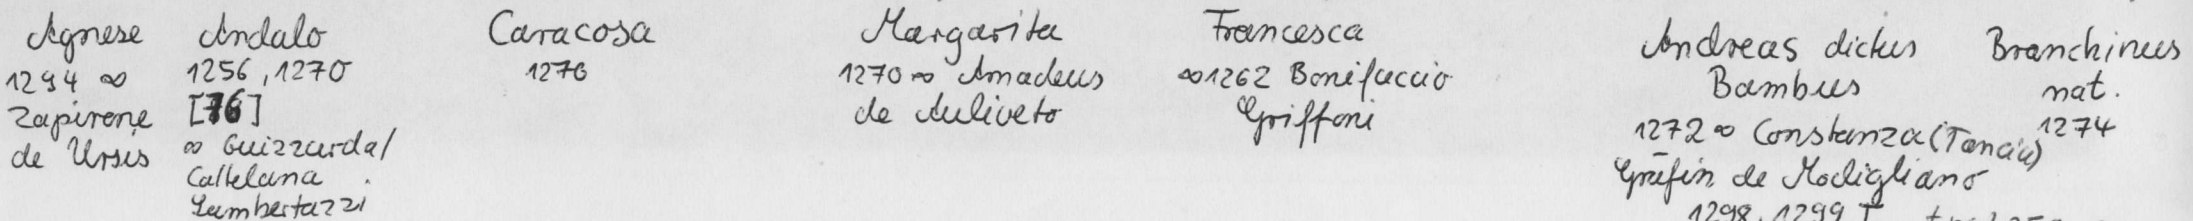 Agnese
1294 ∞
Zapirone
de Ursis
Andalo
1256, 1270
[76]
∞ Guizzarda/
Cattelana
Lambertazzi
Caracosa
1270
Margarita
1270 ∞ Amadeus
de Auliveto
Francesca
∞ 1262 Bonifaccio
Griffoni
Andreas dictus
Bambus
1272 ∞ Constanza (Tancia)
Gräfin de Modigliano
1298, 1299 T
Branchinus
nat.
1274